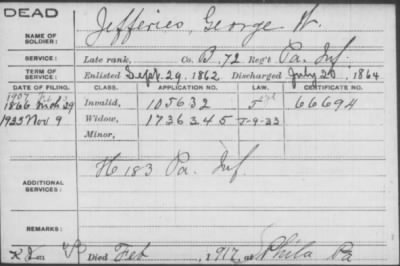 DEAD
NAME OF SOLDIER: Jefferies, George W.
SERVICE: Late rank, Co. B. 72 Reg't Pa. Inf.
TERM OF SERVICE: Enlisted Sept. 29, 1862 Discharged July 20, 1864
DATE OF FILING. CLASS. APPLICATION NO. LAW. CERTIFICATE NO.
1907
1866 Mch 29 Invalid, 105632 66694
1933 Nov 9 Widow, 1736345 5-9-33
Minor,
ADDITIONAL SERVICES: H 183 Pa. Inf.
REMARKS:
Died Feb , 1917, at Phila Pa